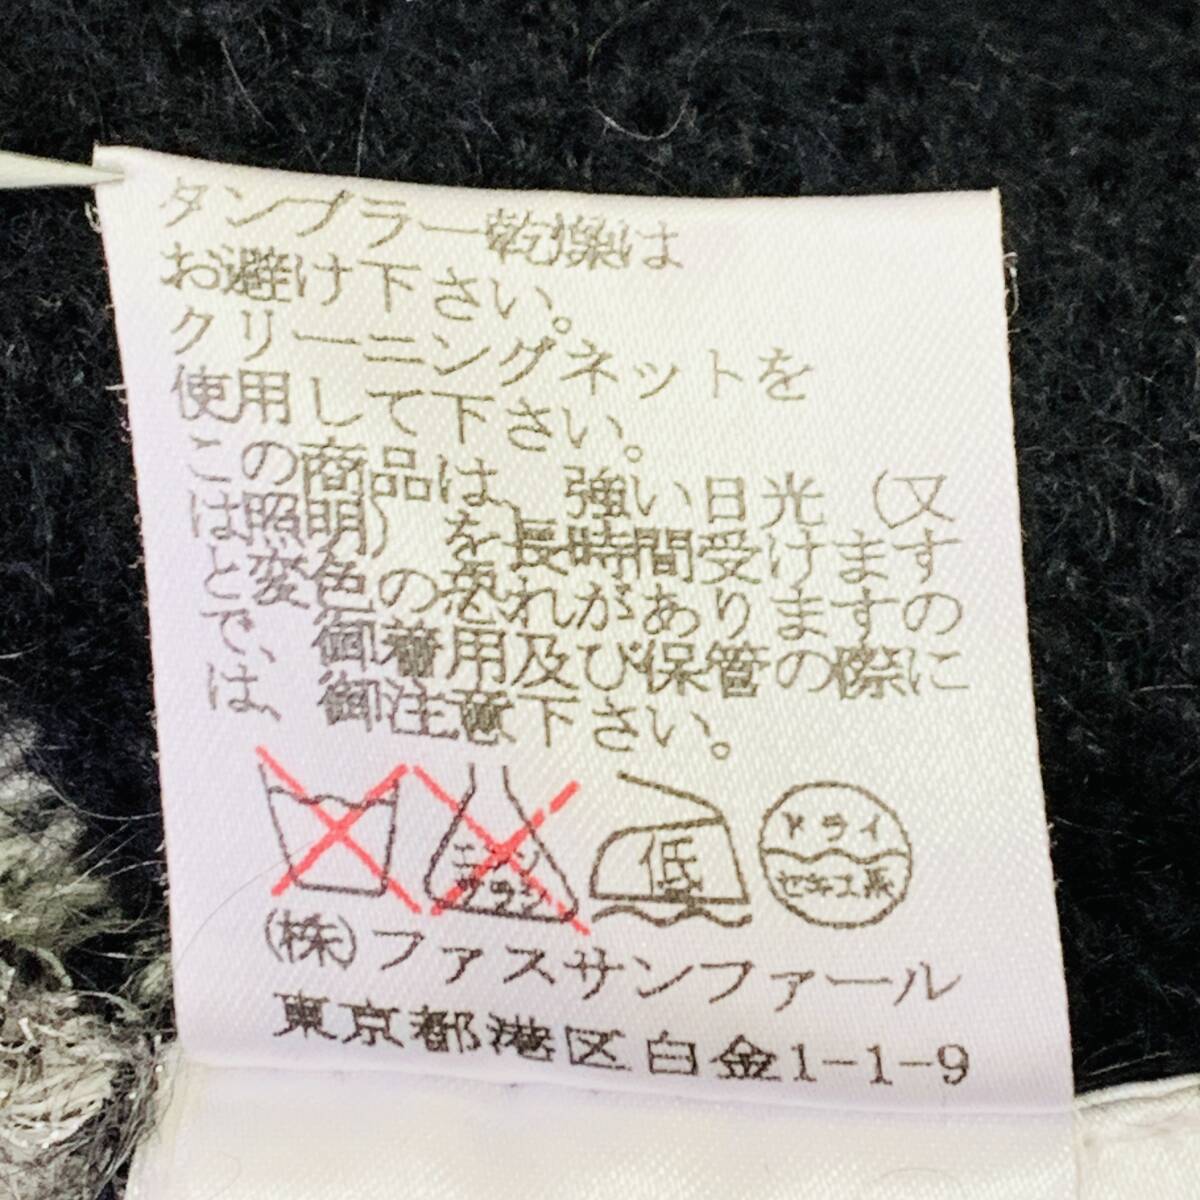 タンブラー乾燥は
お避け下さい。
クリーニングネットを
使用して下さい。
この商品は、強い日光（又
は照明）を長時間受けます
と変色の恐れがありますの
で、御着用及び保管の際に
は、御注意下さい。
エンソ
サラシ
低
ドライ
セキユ系
(株)ファスサンファール
東京都港区白金1-1-9